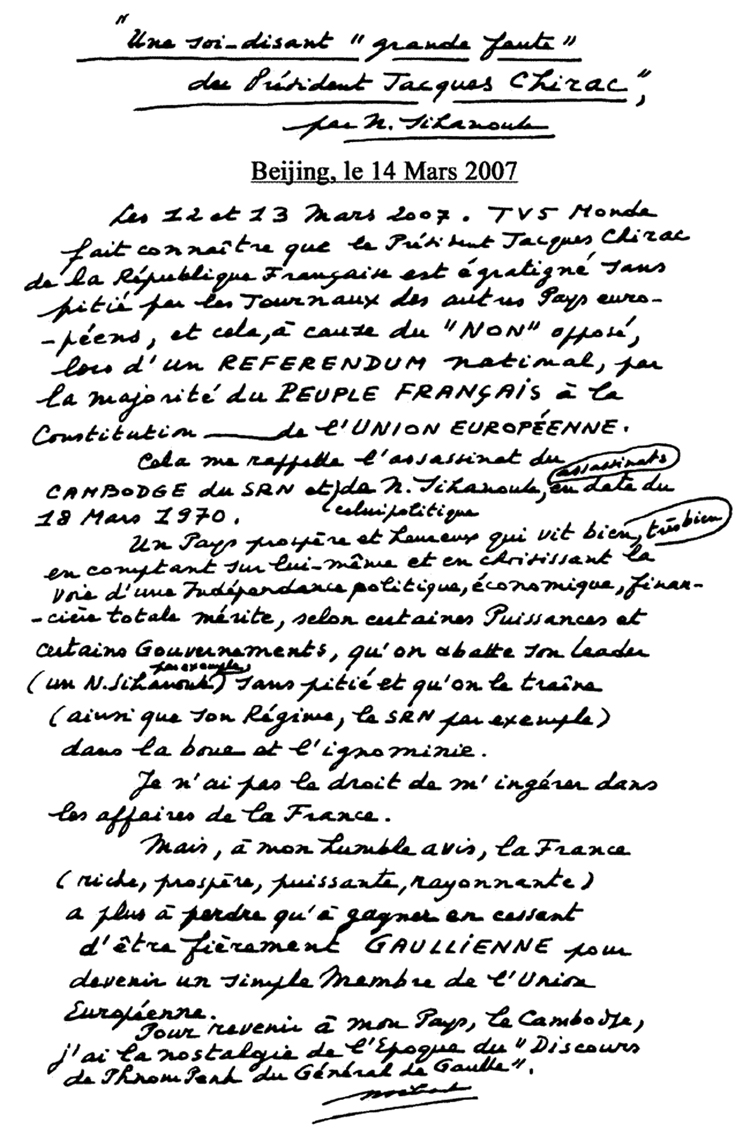 "Une soi-disant "grande faute"
du Président Jacques Chirac",
par N. Sihanouk
Beijing, le 14 Mars 2007
Les 12 et 13 Mars 2007. TV5 Monde
fait connaître que le Président Jacques Chirac
de la République Française est égratigné sans
pitié par les Journaux des autres Pays euro-
-péens, et cela, à cause du "NON" opposé,
lors d'un REFERENDUM national, par
la majorité du PEUPLE FRANÇAIS à la
Constitution de l'UNION EUROPÉENNE.
Cela me rappelle l'assassinat du assassinats
CAMBODGE du SRN et de N. Sihanouk, en date du
18 Mars 1970. celui politique
Un Pays prospère et heureux qui vit bien, très bien
en comptant sur lui-même et en choisissant la
voie d'une Indépendance politique, économique, finan-
-cière totale mérite, selon certaines Puissances et
certains Gouvernements, qu'on abatte son leader
(un N. Sihanouk par exemple) sans pitié et qu'on le traîne
(ainsi que son Régime, le SRN par exemple)
dans la boue et l'ignominie.
Je n'ai pas le droit de m'ingérer dans
les affaires de la France.
Mais, à mon humble avis, la France
(riche, prospère, puissante, rayonnante)
a plus à perdre qu'à gagner en cessant
d'être fièrement GAULLIENNE pour
devenir un simple Membre de l'Union
Européenne.
Pour revenir à mon Pays, le Cambodge,
j'ai la nostalgie de l'Epoque du "Discours
de Phnom Penh du Général de Gaulle".